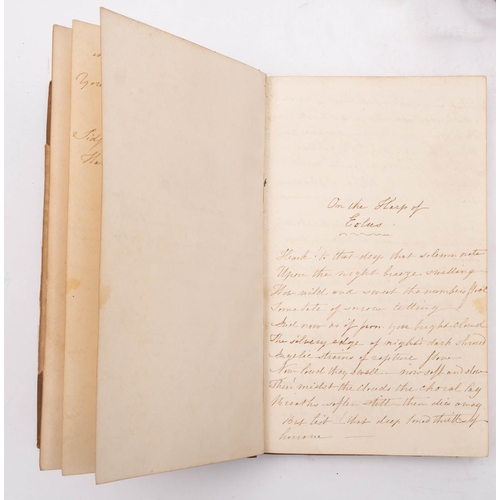 You
On the Harp of
Eolus.
Hark! to that deep that solemn note
Upon the night breeze swelling
How wild and sweet the numbers float
Some tale of sorrow telling
And now as if from yon bright cloud
The silvery edge of night's dark shroud
Angelic strains of rapture flow
Now loud they swell — now soft and slow
Then midst the clouds the choral lay
Breaths softer still then dies away
But list! that deep toned thrill of
horror —